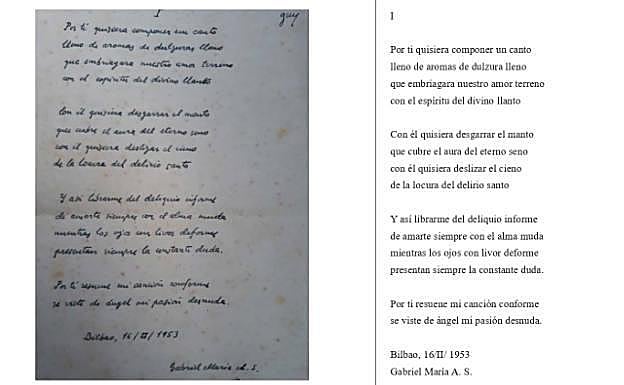 I
guy
Por ti quisiera componer un canto
lleno de aromas de dulzuras lleno
que embriagara nuestro amor terreno
con el espíritu del divino llanto
Con él quisiera desgarrar el manto
que cubre el aura del eterno seno
con él quisiera deslizar el cieno
de la locura del delirio santo
Y así librarme del deliquio informe
de amarte siempre con el alma muda
mientras los ojos con livor deforme
presentan siempre la constante duda.
Por ti resuene mi canción conforme
se viste de ángel mi pasión desnuda.
Bilbao, 16/II/1953
Gabriel María A. S.
I
Por ti quisiera componer un canto
lleno de aromas de dulzura lleno
que embriagara nuestro amor terreno
con el espíritu del divino llanto
Con él quisiera desgarrar el manto
que cubre el aura del eterno seno
con él quisiera deslizar el cieno
de la locura del delirio santo
Y así librarme del deliquio informe
de amarte siempre con el alma muda
mientras los ojos con livor deforme
presentan siempre la constante duda.
Por ti resuene mi canción conforme
se viste de ángel mi pasión desnuda.
Bilbao, 16/II/ 1953
Gabriel María A. S.